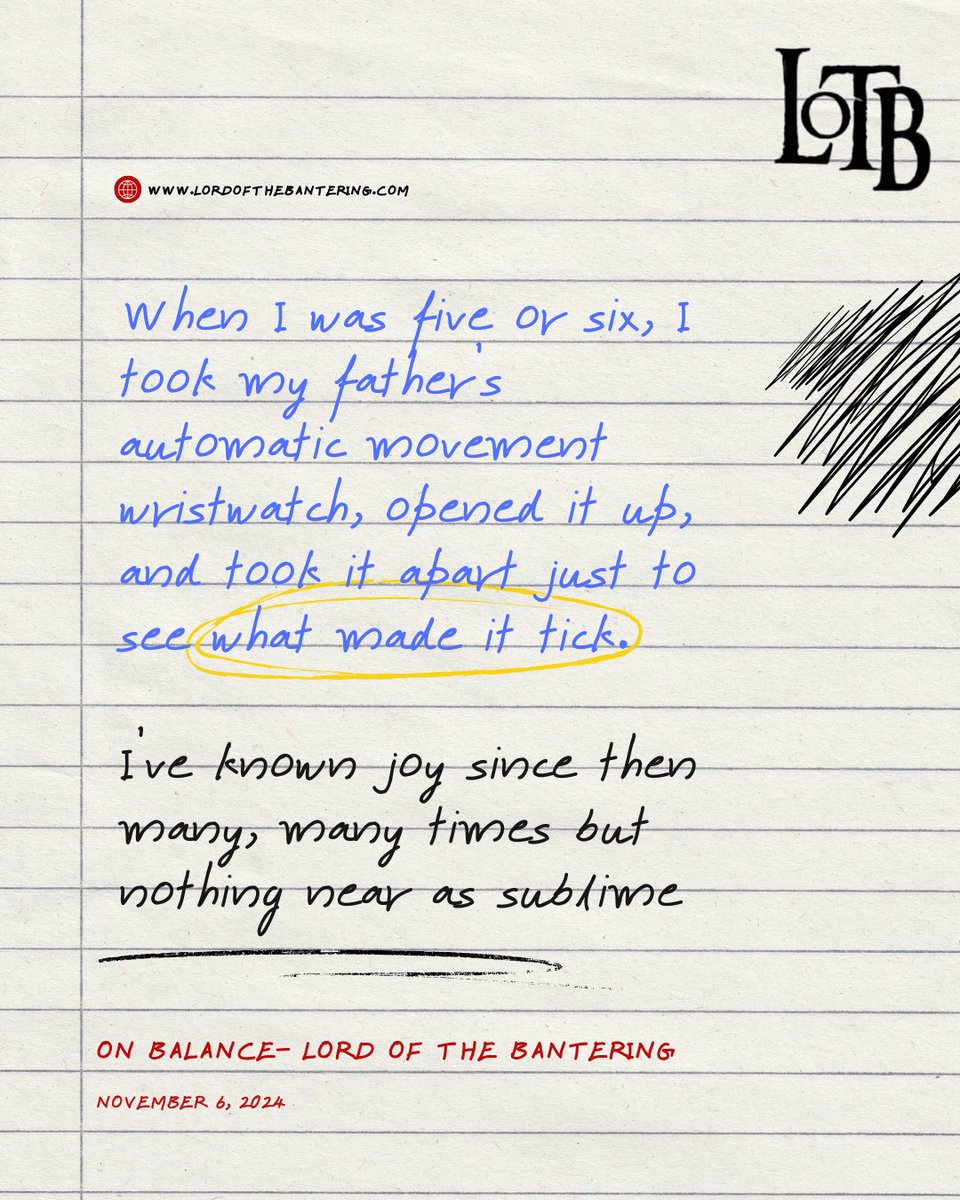 LOTB
WWW.LORDOFTHEBANTERING.COM
When I was five or six, I
took my father's
automatic movement
wristwatch, opened it up,
and took it apart just to
see what made it tick.
I've known joy since then
many, many times but
nothing near as sublime
ON BALANCE- LORD OF THE BANTERING
NOVEMBER 6, 2024